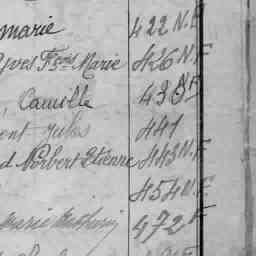 marie 422 N.F
Yves Fçois Marie 426 N.F
, Camille 435 NF
ent Jules 441
d Norbert Etienne 443 N.F
454 N.F
Marie 472 F